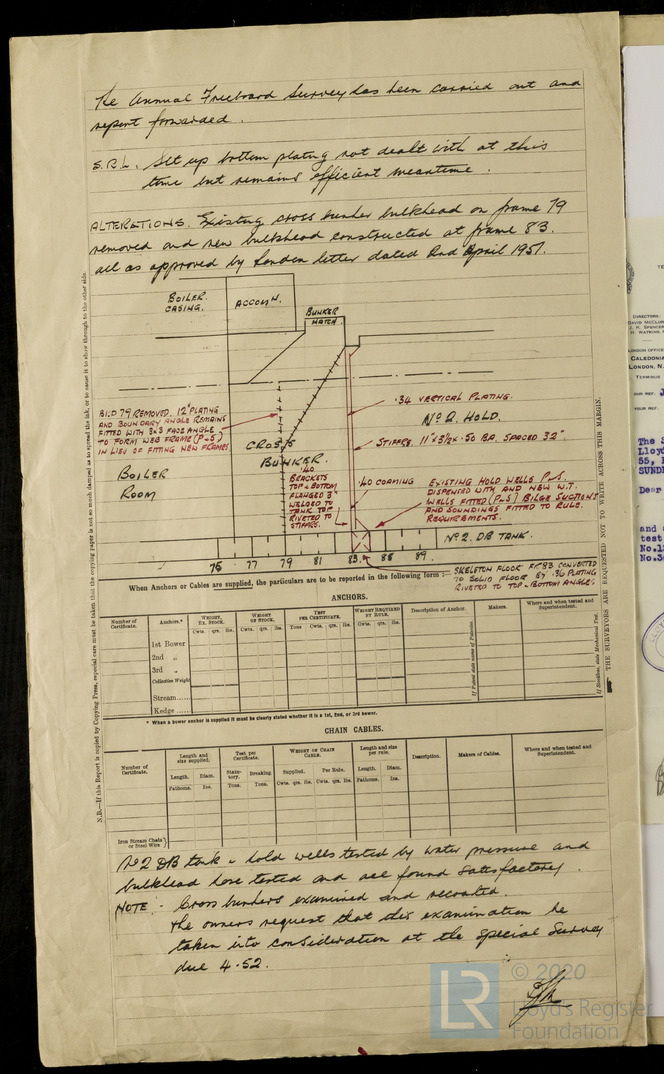 The Annual Freeboard Survey has been carried out and
report forwarded.
S.R.L. Set up bottom plating not dealt with at this
time but remains efficient meantime.
ALTERATIONS. Existing cross bunker bulkhead on frame 79
removed and new bulkhead constructed at frame 83.
all as approved by London letter dated 2nd April 1951.
BOILER
CASING.
ACCOMN.
BUNKER
HATCH.
.34 VERTICAL PLATING.
No 2. HOLD.
STIFFRS. 11"x3½x.50 BA. SPACED 32".
BHD 79 REMOVED. 12" PLATING
AND BOUNDARY ANGLE REMAINS
FITTED WITH 3x3 FACE ANGLE
TO FORM WEB FRAME (P&S)
IN LIEU OF FITTING NEW FRAMES.
CROSS
BUNKER.
BOILER
ROOM
.40
BRACKETS
TOP & BOTTOM
FLANGED 3"
WELDED TO
TANK TOP
RIVETED TO
STIFFRS.
.40 COAMING
EXISTING HOLD WELLS P&S.
DISPENSED WITH AND NEW W.T.
WELLS FITTED (P&S) BILGE SUCTIONS
AND SOUNDINGS FITTED TO RULE.
REQUIREMENTS.
No 2. DB TANK.
75 77 79 81 83. 88 89.
SKELETON FLOOR FR 83 CONVERTED
TO SOLID FLOOR BY .36 PLATING
RIVETED TO TOP & BOTTOM ANGLE.
When Anchors or Cables are supplied, the particulars are to be reported in the following form :—
ANCHORS.
Number of Certificate. Anchors.* WEIGHT, EX. STOCK. WEIGHT OF STOCK. TEST PER CERTIFICATE. WEIGHT REQUIRED BY RULE. Description of Anchor. Makers. Where and when tested and Superintendent.
Cwts. qrs. lbs. Cwts. qrs. lbs. Tons Cwts. qrs. lbs. Cwts. qrs. lbs.
1st Bower
2nd „
3rd „
Collective Weight
Stream.....
Kedge .....
If Patent state name of Patentee.
If Stockless, state Mechanical Test.
* When a bower anchor is supplied it must be clearly stated whether it is a 1st, 2nd, or 3rd bower.
CHAIN CABLES.
Number of Certificate. Length and size supplied. Test per Certificate. WEIGHT OF CHAIN CABLE. Length and size per rule. Description. Makers of Cables. Where and when tested and Superintendent.
Length. Diam. Statutory. Breaking Supplied. Per Rule. Length. Diam.
Fathoms. Ins. Tons. Tons. Cwts. qrs. lbs. Cwts. qrs. lbs. Fathoms. Ins.
Iron Stream Chain
or Steel Wire
No 2 DB tank & hold wells tested by water pressure and
bulkhead hose tested and all found satisfactory.
NOTE:- Cross bunkers examined and recoated.
The owners request that this examination be
taken into consideration at the Special Survey
due 4.52.
N.B.—If this Report is copied by Copying Press, especial care must be taken that the copying paper is not so much damped as to spread the ink, or to cause it to show through to the other side.
THE SURVEYORS ARE REQUESTED NOT TO WRITE ACROSS THIS MARGIN.
DIRECTORS:
LONDON OFFICE
CALEDONIA
LONDON, N.
TERMINUS
OUR REF.
YOUR REF.
The S
Lloyd
55,
SUNDE
Dear
and
test
No.1
No.3
LR
© 2020
Lloyd's Register
Foundation